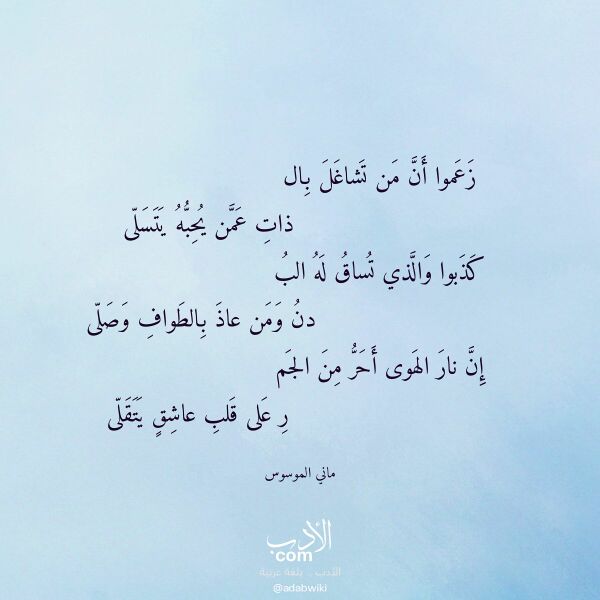 زَعَموا أَنَّ مَن تَشاغَلَ بِال
ذاتِ عَمَّن يُحِبُّهُ يَتَسَلّى
كَذَبوا وَالَّذي تُساقُ لَهُ البُ
دنُ وَمَن عاذَ بِالطَوافِ وَصَلّى
إِنَّ نارَ الهَوى أَحَرُّ مِنَ الجَم
رِ عَلى قَلبِ عاشِقٍ يَتَقَلّى
ماني الموسوس
الأدب
com
الأدب .. بلغة عربية
@adabwiki